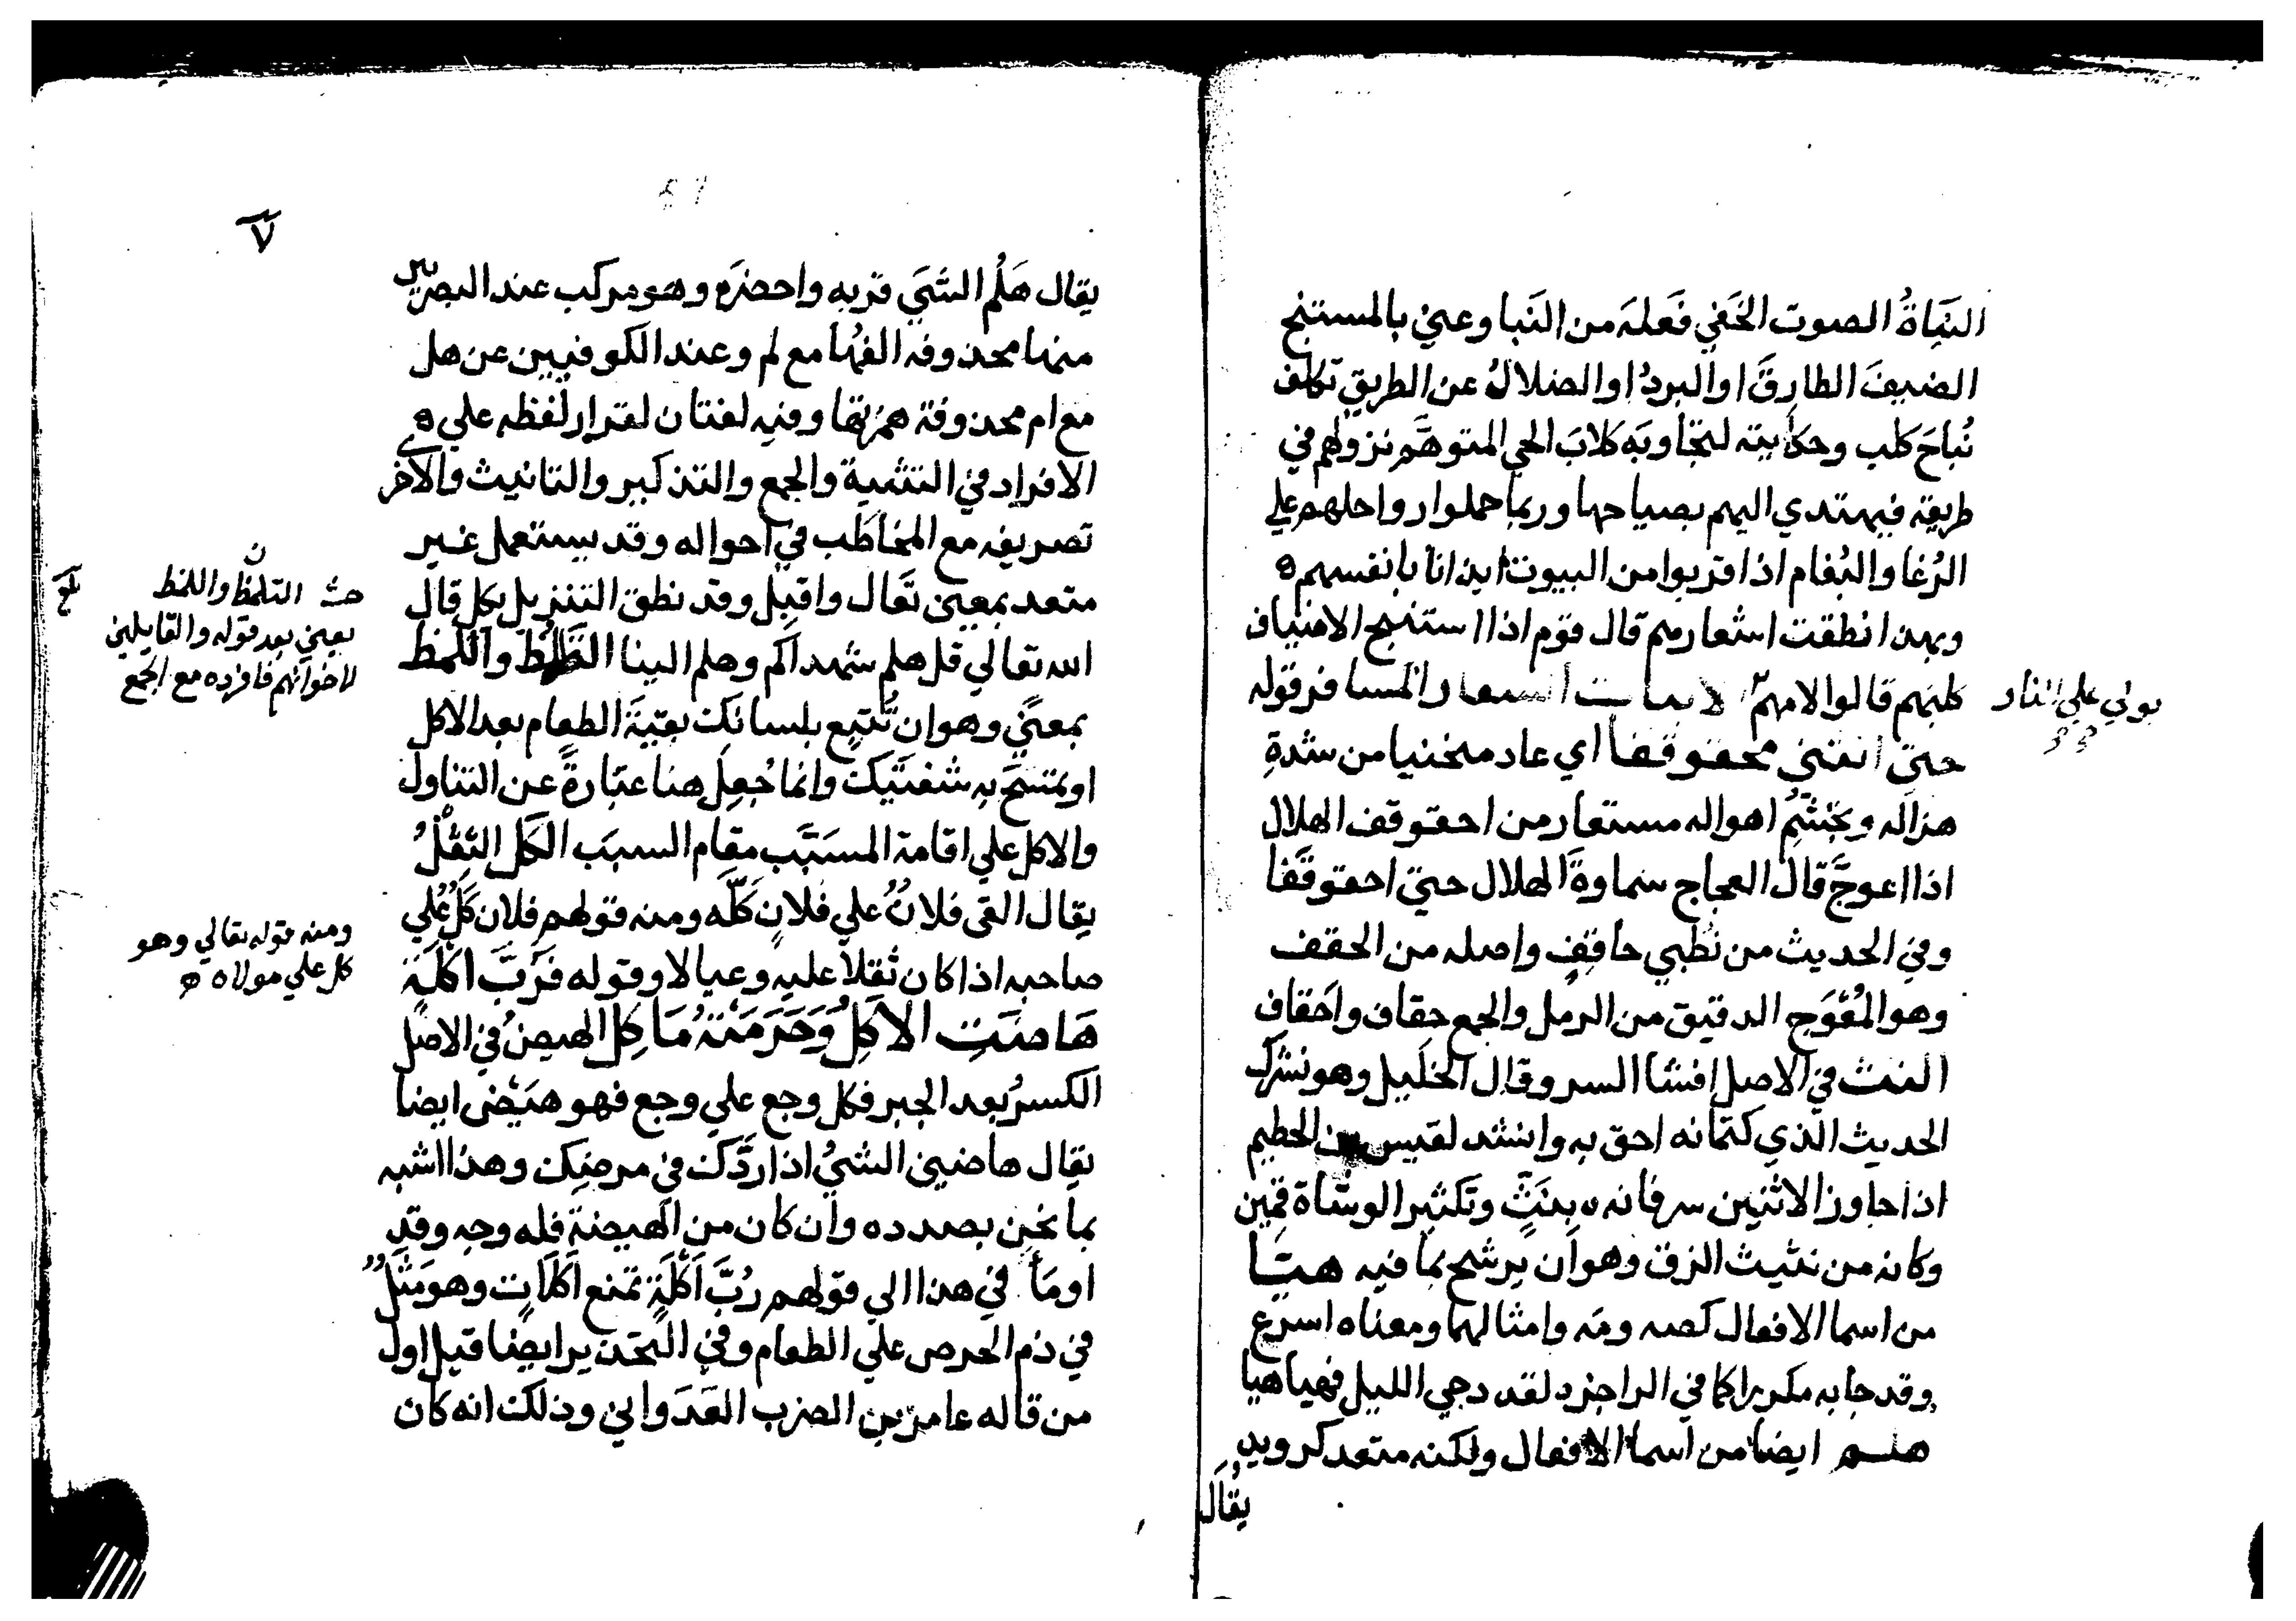 النَبأةُ الصوت الخَفي فَعلة من النَبا وعني بالمستنبح
الضيفَ الطارِقَ او البردُ او الضلالُ عن الطريق تكلف
نُباحَ كلب وحكايته لتجاوبَه كلابَ الحي المتوهَّم نزولهم في
طريقه فيهتدي اليهم بصياحها وربما حملوا رواحلهم علي
الرُغا والبُغام اذا قربوا من البيوت ايذانا بانفسهم ه
وبهذا نطقت اشعارهم قال قوم اذا استنبح الاضياف
كلبَهم قالوا لامهمّ لابيات المسافر قوله
بولي علي النار
حتي انثني محقوقفا اي عاد منحنيا من شدةِ
هزاله وتجَشّمِ اهواله مستعار من احقوقف الهلال
اذا اعوجَّ قال العجاج سماوةَ الهلال حتي احقوقَفا
وفي الحديث من ظبي حاقفٍ واصله من الحقف
وهو المُعْوَج الدقيق من الرمل والجمع حقاف واحَقاف
النث في الاصل افشا السر وقال الخليل وهو نشرك
الحديث الذي كتمانه احق به وانشد لقيس بن الحطيم
اذا جاوز الاثنين سر فانه ه بِنَثٍّ وتَكثير الوشاة قمين
وكانه من نثيث الزق وهو ان يرشح بما فيه هيّا
من اسما الافعال كصه ومَه وامثالهما ومعناه اسرع
وقد جا به مكررا كما في الراجز ه لقد دجي الليل فهيا هيا
هلم ايضا من اسما الافعال ولكنه متعد كرويد
يقال
٧
يقال هَلُم الشَي قربه واحضرَه وهو مركب عند البصريين
من ها محذوفه الفُها مع لم وعند الكوفيين عن هل
مع ام محذوفة همزتها وفيه لغتان لقرار لفظه علي ه
الافراد في التثنية والجمع والتذكير والتانيث والاخر
تصريفه مع المخاطَب في احواله وقد يستعمل غير
متعد بمعني تعَال واقبِل وقد نطق التنزيل بكل قال
الله تعالي قل هلم شهداكم وهلم الينا التلمُّظ واللَّمظ
بمعنيً وهو ان تَتَبع بلسانك بقيَّةَ الطعام بعد الاكل
او تمَسَحَ به شفتَيك وانما جُعِلَ هنا عبَارةً عن التناول
والاكل علي اقامة المسَبَّب مقام السبَب الكَل الثِقْلُ
يقال القي فلانٌ علي فلانٍ كَلّه ومنه قولهم فلان كَلٌّ علي
صاحبه اذا كان ثقِلاً عليه وعيالا وقوله فَرُبَّ اكْلَةٍ
هَاضَتِ الاكِلَ وَحَرَمَتْهُ مَاكِل الهيضُ في الاصل
الكسرُ بعد الجبر فكل وجع علي وجع فهو هَيْض ايضا
يقال هاضني الشيُ اذا ردَّك في مرضِك وهذا اشبه
بما نحن بصدده وان كان من الهيضَة فله وجه وقد
اومَأ في هذا الي قولهم رُبَّ اَكْلَةٍ تمنع اَكَلاتٍ وهو مَثَلٌ
في ذم الحرص علي الطعام وفي التحذير ايضا قيل اول
من قاله عامر بن الضرب العَدَواني وذلك انه كان
حث التلمظ واللمظ
بعني بعد قوله والقايلين
لاخوانهم فافرده مع الجمع
بلغ
ومنه قوله تعالي وهو
كل علي مولاه